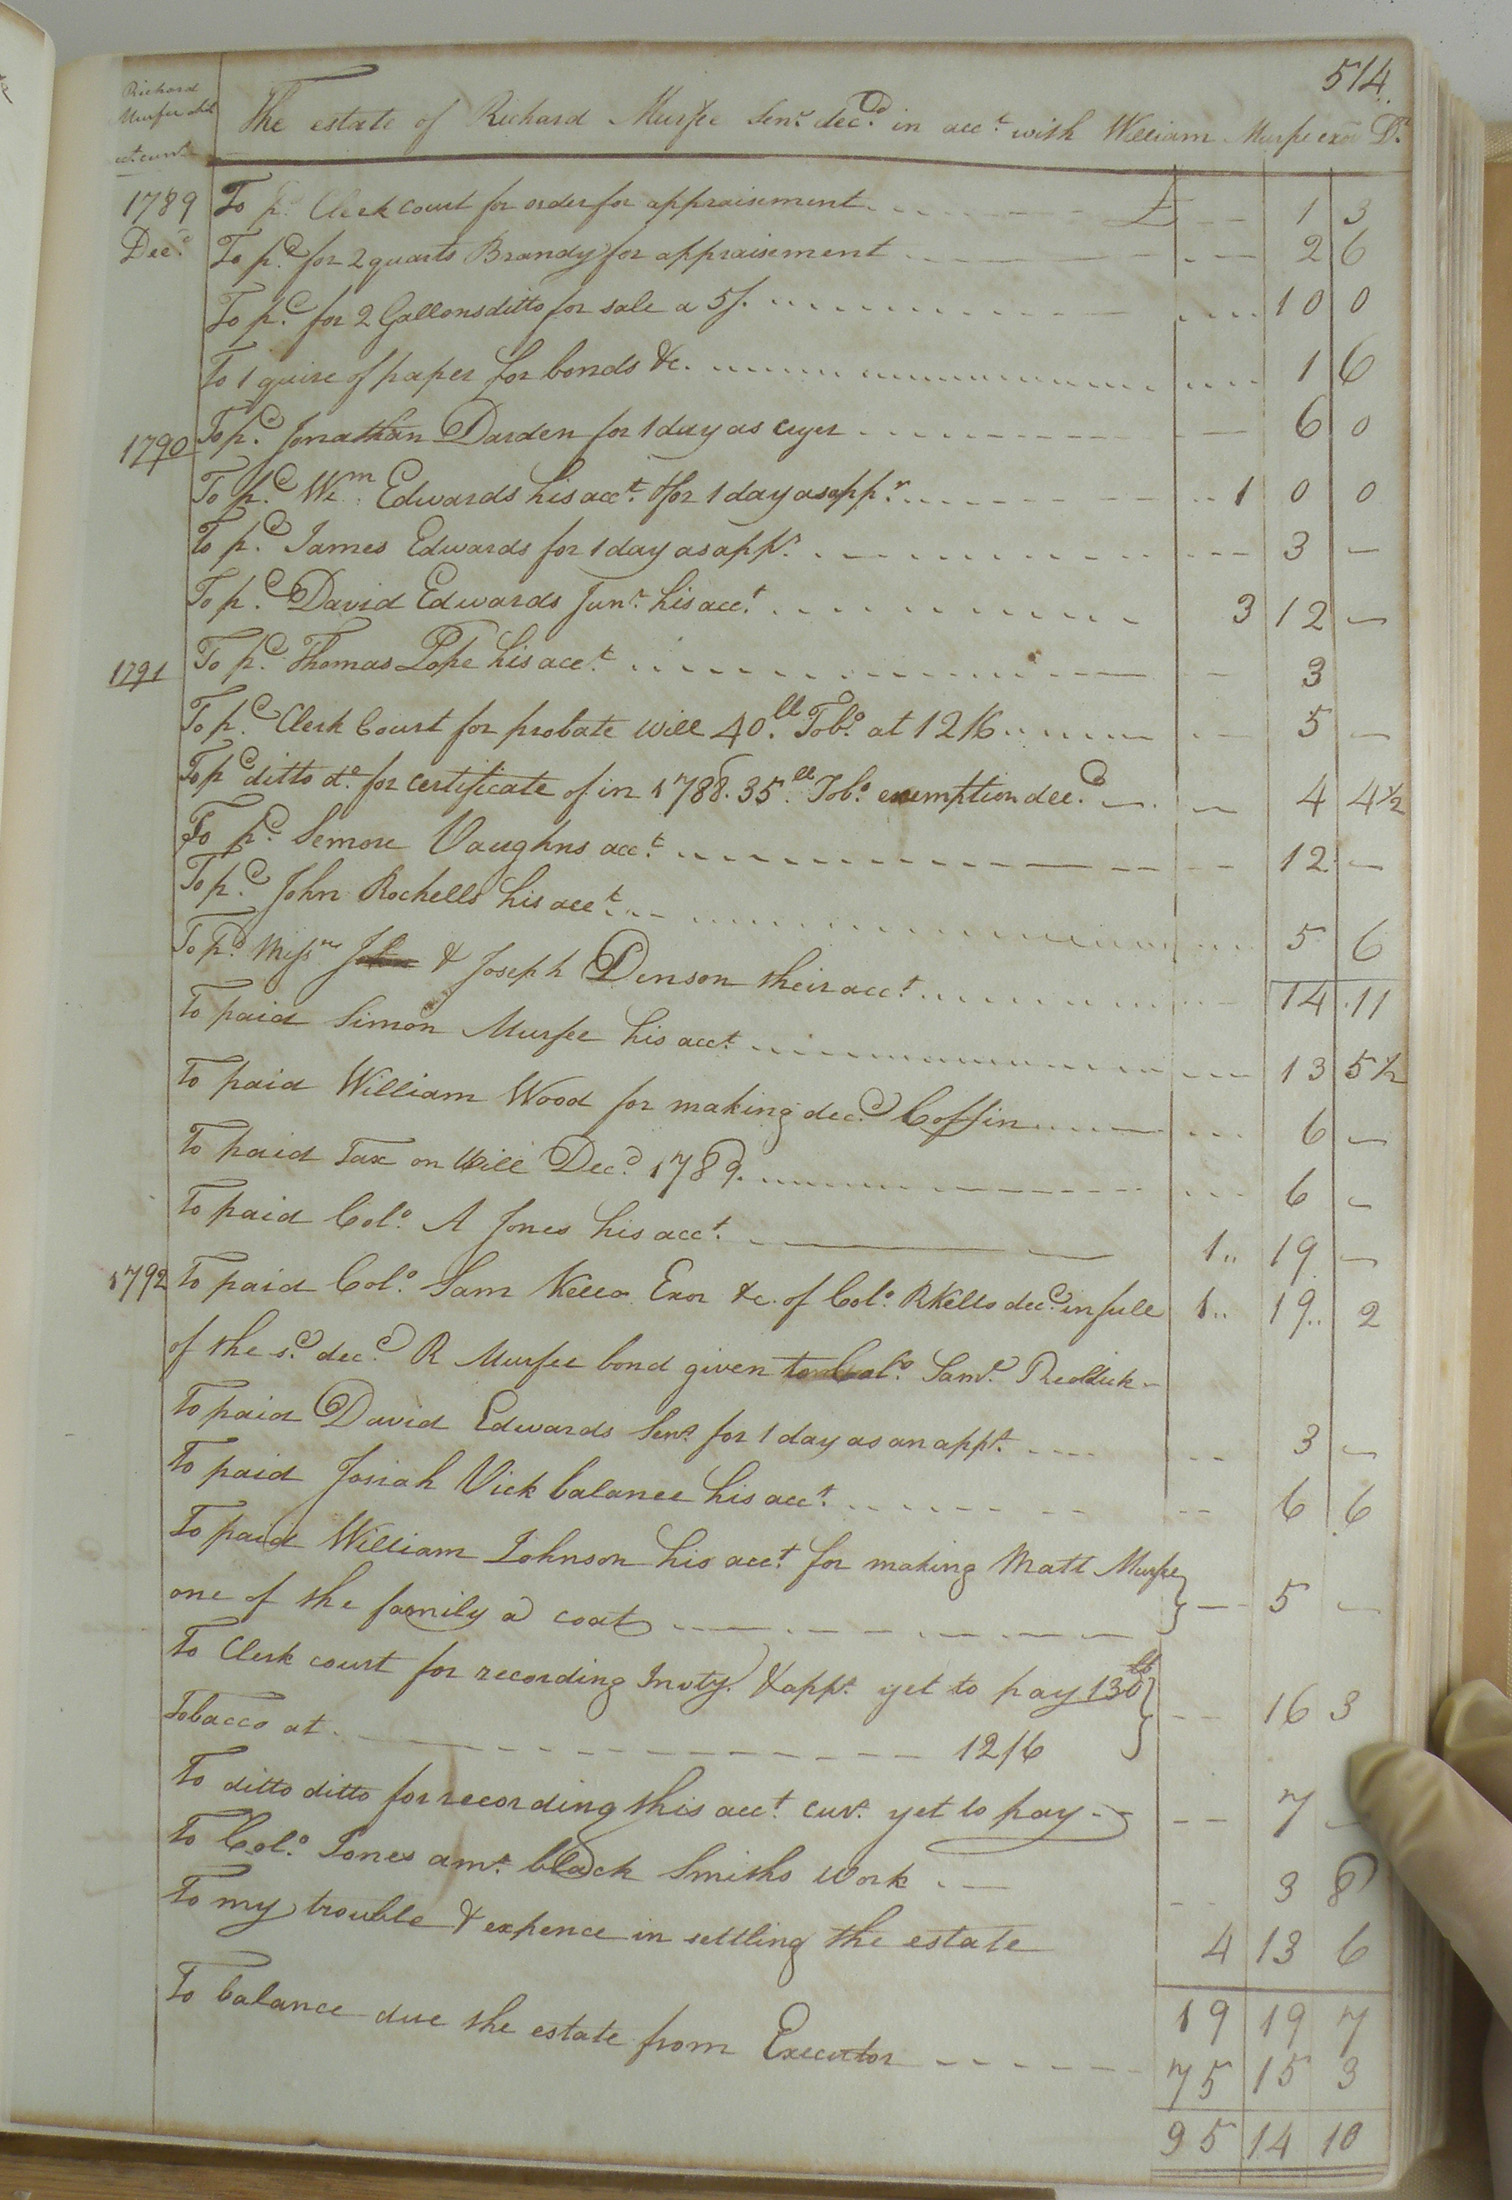 514.
Richard
Murfee
acct. currt.
The estate of Richard Murfee Senr. decd. in acct. with William Murfee exor Dr.
1789 To pd. Clerk court for order for appraisement £ 1 3
Decr. To pd. for 2 quarts Brandy for appraisement 2 6
To pd. for 2 Gallons ditto for sale a 5/. 10 0
To 1 quire of paper for bonds &c. 1 6
1790 To pd. Jonathan Darden for 1 day as cryer 6 0
To pd. Wm. Edwards his acct. & for 1 day as appr. 1 0 0
To pd. James Edwards for 1 day as appr. 3 —
To pd. David Edwards Junr. his acct. 3 12 —
1791 To pd. Thomas Pope his acct. 3
To pd. Clerk Court for probate will 40.ll Tobo. at 12/6 5 —
To pd ditto do. for certificate of in 1788. 35.ll Tobo. exemption decd. 4 4½
To pd. Semore Vaughns acct. 12 —
To pd. John Rochells his acct. 5 6
To pd. Messrs John & Joseph Denson their acct. 14 11
To paid Simon Murfee his acct. 13 5½
To paid William Wood for making decd. Coffin 6 —
To paid Tax on Will Decd. 1789. 6 —
To paid Colo. A Jones his acct. 1.. 19 —
1792 To paid Colo. Sam Kello Exor &c. of Colo. R Kello decd. in full 1.. 19.. 2
of the sd. decd. R Murfee bond given to Colo. Saml. Reddick
To paid David Edwards Senr. for 1 day as an appr. 3 —
To paid Josiah Vick balance his acct. 6 6
To paid William Johnson his acct. for making Matt Murfee
one of the family a coat 5 —
To Clerk court for recording Invty. & appt. yet to pay 130 lb
Tobacco at 12/6 16 3
To ditto ditto for recording this acct. curt. yet to pay 7 —
To Colo. Jones amt. black Smiths work 3 8
To my trouble & expence in settling the estate 4 13 6
19 19 7
To balance due the estate from Executor 75 15 3
95 14 10